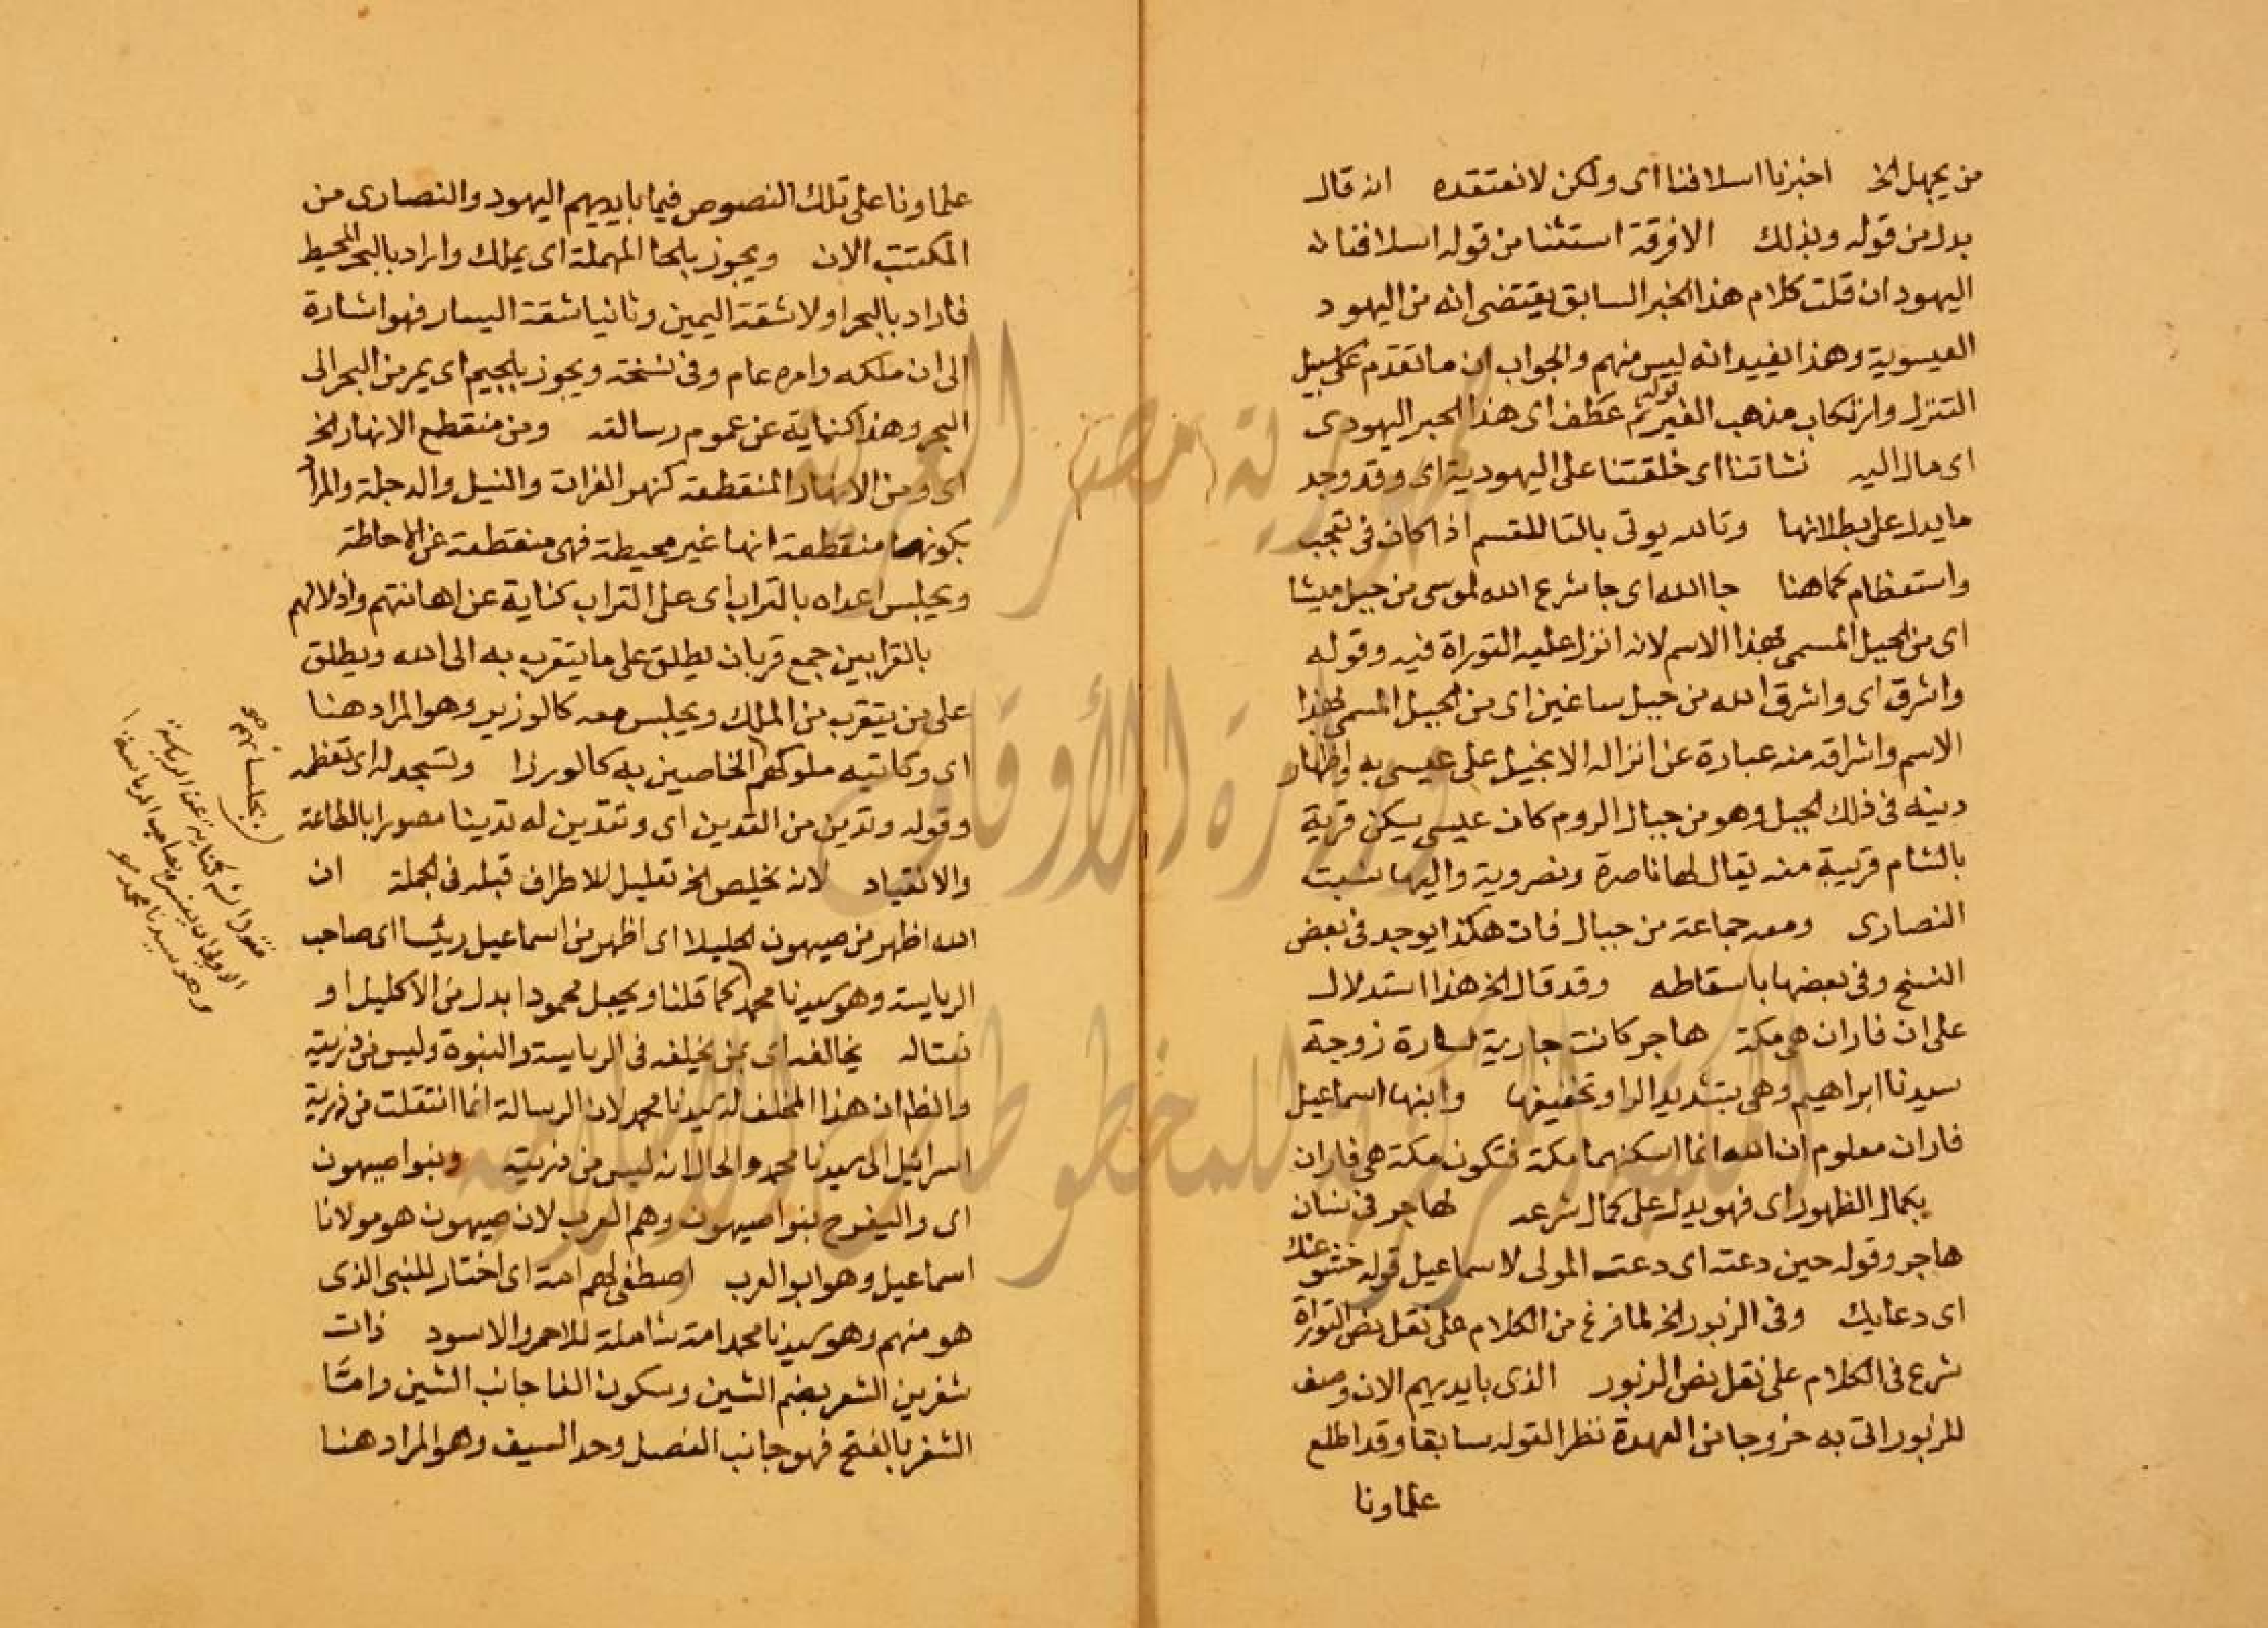 من يجهل الخ اخبرنا اسلافنا اى ولكن لا نعتقده انه قال
بدل من قوله وبذلك الا فرقة استثنا من قوله اسلافنا له
اليهود ان قلت كلام هذا الحبر السابق يقتضى انه من اليهود
العيسوية وهذا يفيد انه ليس منهم والجواب ان ما تقدم على سبيل
التنزل وارتكاب مذهب الغير قوله ثم عطف اى هذا الحبر اليهودى
اى مال اليه نشاتنا اى خلقتنا على اليهودية اى وقد وجد
ما يدل على بطلانها وتالله يوتى بالتا للقسم اذا كان فى تعجب
واستعظام كما هنا جا الله اى جا شرع الله لموسى من جبل ميشا
اى من الجبل المسمى بهذا الاسم لانه انزل عليه التوراة فيه وقوله
واشرق اى واشرق الله من جبل ساغين اى من الجبل المسمى بهذا
الاسم واشراقه منه عبارة عن انزاله الانجيل على عيسى به واظهار
دينه فى ذلك الجبل وهو من جبال الروم كان عيسى يسكن قرية
بالشام قريبة منه يقال لها ناصرة ونصروية واليها نسبت
النصارى ومعه جماعة من جبال فان هكذا يوجد فى بعض
النسخ وفى بعضها باسقاطه وقد قال الخ هذا استدلال
على ان فاران هى مكة هاجر كانت جارية لسارة زوجة
سيدنا ابراهيم وهى بتشديد الرا وتخفيفها وابنها اسماعيل
فاران معلوم ان الله انما اسكنهما مكة فتكون مكة هى فاران
بكمال الظهور اى فهو يدل على كمال شرعه لهاجر فى شان
هاجر وقوله حين دعته اى دعت المولى لاسماعيل قوله خشوعك
اى دعايك وفى الزبور الخ لما فرغ من الكلام على نقل نص التوراة
شرع فى الكلام على نقل نص الزبور الذى بايديهم الان وصف
للزبور اتى به خروجا من العهدة نظرا لقوله سابقا وقد اطلع
علماونا
علماونا على تلك النصوص فيما بايديهم اليهود والنصارى من
المكتتب الان ويجوز بالحا المهملة اى يملك واراد بالبحر المحيط
فاراد بالبحر اولا شقة اليمين وثانيا شقة اليسار فهو اشارة
الى ان ملكه وامره عام وفى نسخة ويجوز بالجيم اى يمر من البحر الى
البحر وهذا كناية عن عموم رسالته ومن منقطع الانهار الخ
اى ومن الانهار المنقطعة كنهر الفرات والنيل والدجلة والمراد
بكونها منقطعة انها غير محيطة فهى منقطعة عن الاحاطة
ويجلس اعداه بالتراب اى على التراب كناية عن اهانتهم واذلالهم
بالقرابين جمع قربان يطلق على ما يتقرب به الى الله ويطلق
على من يتقرب من الملك ويجلس معه كالوزير وهو المراد هنا
اى وتاتيه ملوكهم الخاصين به كالوزرا وتسجد له اى تعظمه
وقوله وتدين من التدين اى وتتدين له تدينا مصورا بالطاعة
والانقياد لانه يخلص الخ تعليل للاطراف قبله فى الجملة ان
الله اظهر من صيهون اكليلا اى اظهر من اسماعيل ريئسا اى صاحب
الرياسة وهو سيدنا محمد كما قلنا ويجعل محمودا بدل من الاكليل او
نعتا له يخالف اى بمن يخلفه فى الرياسة والنبوة وليس من ذريته
والظ ان هذا المخلف له سيدنا محمد لان الرسالة انما انتقلت من ذرية
اسرائيل الى سيدنا محمد والحال انه ليس من ذريته وبنوا صيهون
اى واليفرح بنوا صيهون وهم العرب لان صيهون هو مولانا
اسماعيل وهو ابو العرب اصطفى لهم امة اى اختار للنبى الذى
هو منهم وهو سيدنا محمد امة شاملة للاحمر والاسود ذات
شفرين الشفر بضم الشين وسكون الفا جانب الشين وامّا
الشفر بالفتح فهو جانب النصل وحد السيف وهو المراد هنا
بجلسائهم صح
وهو سيدنا محمد